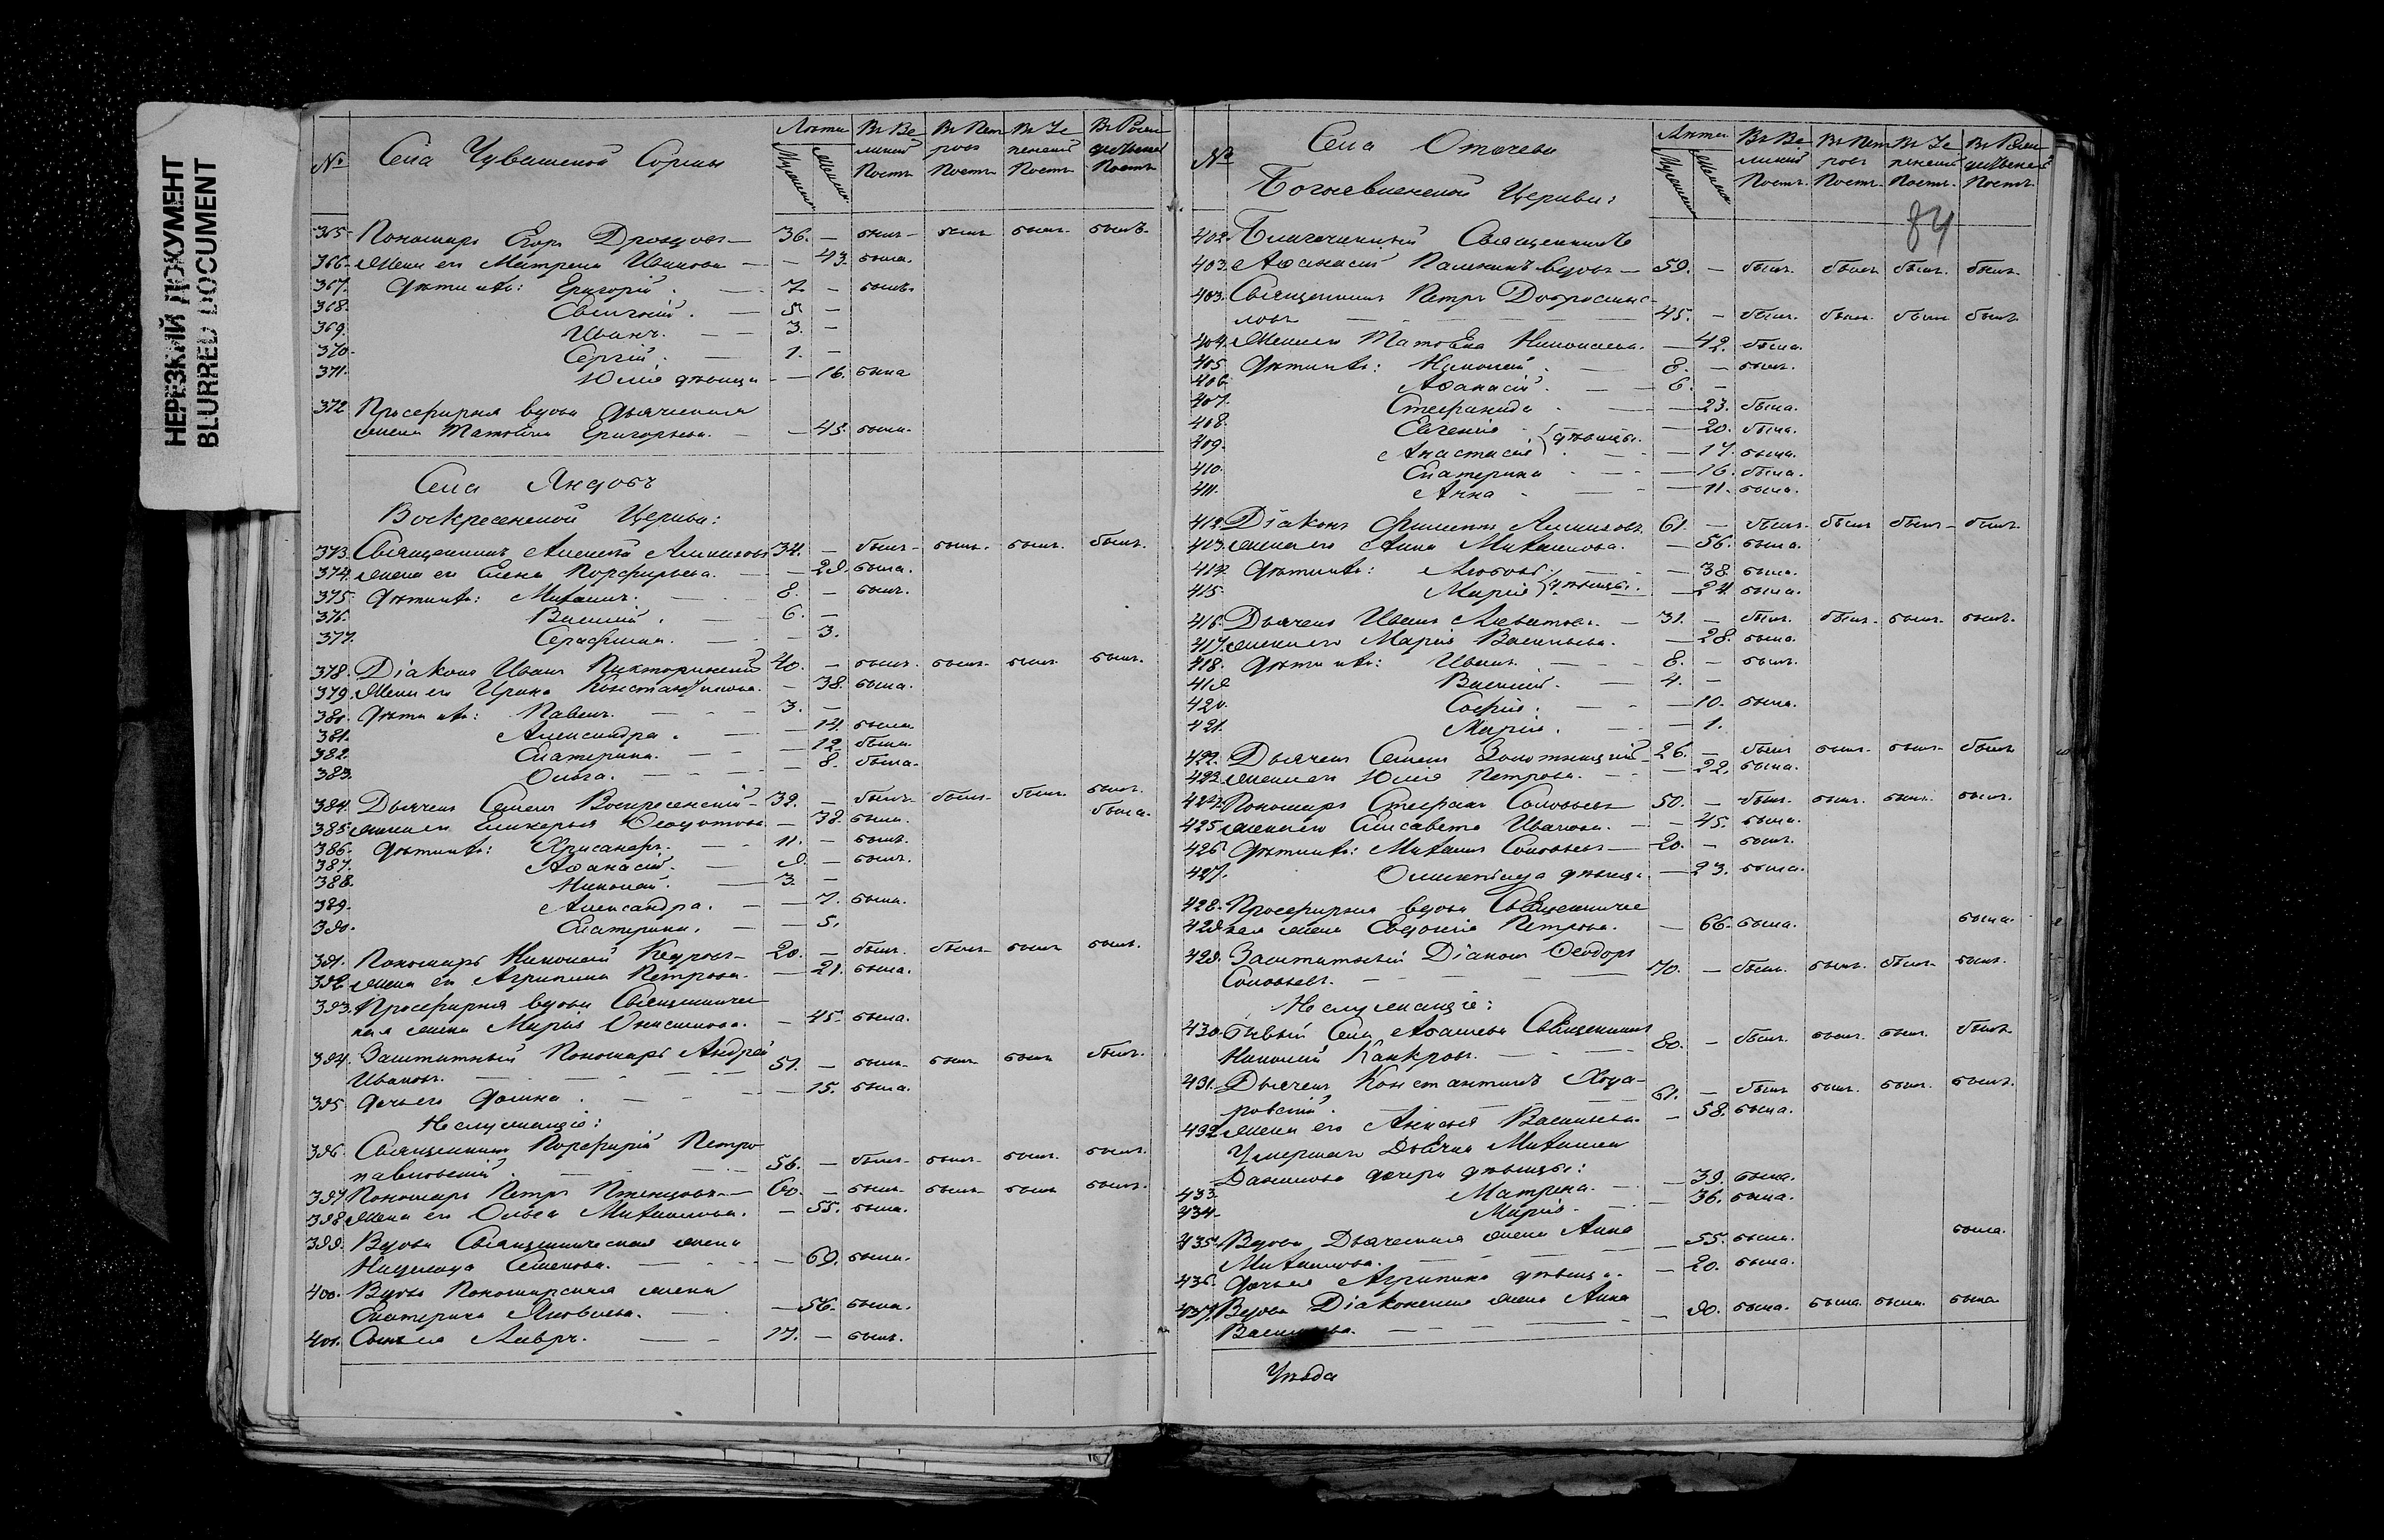 НЕРЕЗКИЙ ДОКУМЕНТ
BLURRED DOCUMENT
№ Села Чувашской Сормы Лѣта Въ Ве Въ Пет Въ Ус Въ Рож
ликій ровъ пенскій дественс
Постъ Постъ Постъ Постъ
365 Пономарь Егоръ Дроздовъ — 36. — былъ былъ былъ былъ
366. Жена его Матрена Иванова — — 43. была.
367. Дѣти ихъ: Григорій. — 7. — былъ
368. Евгеній. — 5. —
369. Иванъ. — 3. —
370. Сергій. — 1. —
371. Юлія дѣвица — 16. была
372 Просфирня вдова Дьяческая
жена Татьяна Григорьева. — 45. была.
Села Яндовъ
Воскресенской Церкви:
373. Священникъ Алексѣй 34. — былъ былъ. былъ. былъ.
374. Жена его Елена Порфирьева. — 29. была.
375. Дѣти ихъ: Михаилъ. — 8. — былъ.
376. Василій. — 6. —
377. Серафима. — 3.
378. Діаконъ Иванъ Пикторинскій 40. — былъ. былъ. былъ. былъ.
379. Жена его Ирина Константинова. — 38. была.
380. Дѣти ихъ: Павелъ. — 3. —
381. Александра. — 14. была
382. Екатерина. — 12. была.
383. Ольга. — 8. была.
384. Дьячекъ Семенъ Воскресенскій 39. — былъ. былъ. былъ. былъ.
385. жена его Гликерья — 38. была. была.
386. Дѣти ихъ: Хрисанфъ. — 11. — былъ.
387. Аѳанасій. — 9. — былъ.
388. Николай. — 3. —
389. Александра. — 7. была.
390. Екатерина. — 5.
391. Пономарь Николай Кедровъ 20. — былъ. былъ. былъ былъ.
392. Жена его Агрипина Петрова. — 21. была.
393. Просфирня вдова Священничес
кая жена Марія Онисимова. — 45. была.
394. Заштатный Пономарь Андрей
Ивановъ. — 51. — былъ. былъ. былъ былъ.
395 Дочь его Фаина. — 15. была.
Неслужащіе:
396. Священникъ Порфирій Петро
павловскій. — 56. — былъ. былъ. былъ. былъ.
397 Пономарь Петръ 60. — былъ. былъ. былъ былъ.
398. Жена его Ольга Михаилова. — 55. была.
399. Вдова Священническая жена
Надежда Семенова. — 69. была.
400. Вдова Пономарская жена
Екатерина Яковлева. — 56. была.
401. Сынъ ея Лавръ. — 17. — былъ.
№ Села Отачева Лѣта Въ Ве Въ Пет Въ Ус Въ Рож
ликій ровъ пенскій дественскій
Постъ. Постъ. Постъ. Постъ
Богоявленской Церкви:
84
402. Благочинный Священникъ
403. Аѳанасій вдовъ — 59. — былъ. былъ былъ. былъ.
403. Священникъ Петръ Добросмыс
ловъ — 45. — былъ. былъ. былъ былъ
404. Жена его Татьяна Николаева. — 42. была.
405 Дѣти ихъ: Николай. — 8. — былъ.
406. Аѳанасій. — 6. —
407. Стефанида — 23. была.
408. Евгенія — 20. была.
409. Анастасія дѣвицы. — 17. была.
410. Екатерина — 16. была.
411. Анна — 11. была.
412. Діаконъ Филиппъ 61. — былъ. былъ былъ. былъ
413. жена его Анна Михаилова. — 56. была.
414. Дѣти ихъ: Любовь — 38. была.
415. Марія дѣвицы. — 24. была.
416. Дьячекъ Иванъ 31. — былъ. былъ. былъ. былъ.
417. жена его Марія Васильева. — 28. была.
418. Дѣти ихъ: Иванъ. — 8. — былъ.
419 Василій. — 4. —
420. Софія. — 10. была.
421. Марія. — 1.
422. Дьячекъ Семенъ Золотницкій 26. — былъ былъ. былъ. былъ
423. жена его Юлія Петрова. — 22. была.
424. Пономарь Стефанъ Соловьевъ 50. — былъ. былъ. былъ. былъ.
425. жена его Елисавета Иванова. — 45. была.
426. Дѣти ихъ: Михаилъ Соловьевъ — 20. — былъ.
427. Олимпіада дѣвица — 23. была.
428. Просфирня вдова Священничес
429. кая жена Евдокія Петрова. — 66. была. была.
429. Заштатный Діаконъ Ѳеодоръ
Соловьевъ. — 70. — былъ. былъ. былъ. былъ.
Неслужащіе:
430. Бывый Села Абашева Священникъ
Николай — 80. — былъ. былъ. былъ. былъ.
431. Дьячекъ Константинъ
ровскій. — 61. — былъ былъ. былъ. былъ.
432 жена его Анисья Васильева — 58. была.
Умершаго Дьячка Михаила
Данилова дочери дѣвицы: — 39. была.
433. Матрена. — 36. была.
434. Марія.
435. Вдова Дьяческая жена Анна
Михаилова. — 55. была. была.
436. Дочь ея Агрипина дѣвица. — 20. была.
437. Вдова Діаконская жена Анна
Васильева. — 90. была. была. была. была
Уѣзда